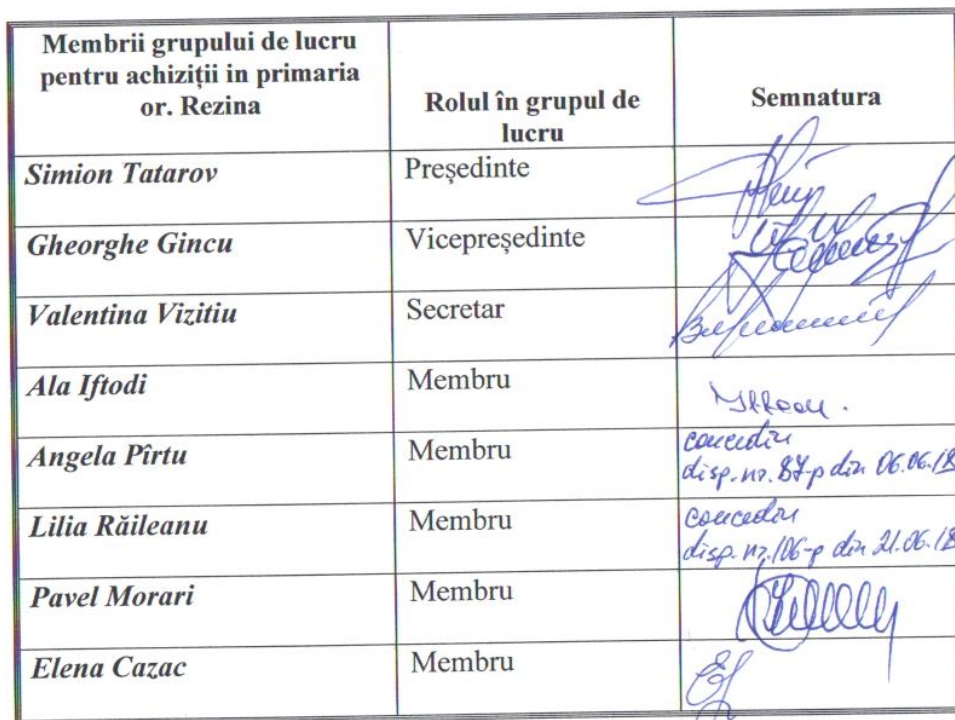 Membrii grupului de lucru
pentru achiziții in primaria
or. Rezina
Rolul în grupul de
lucru
Semnatura
Simion Tatarov
Președinte
Gheorghe Gincu
Vicepreședinte
Valentina Vizitiu
Secretar
Ala Iftodi
Membru
Angela Pîrtu
Membru
concediu
disp. nr. 87-p din 06.06.18
Lilia Răileanu
Membru
concediu
disp. nr. 106-p din 21.06.18
Pavel Morari
Membru
Elena Cazac
Membru